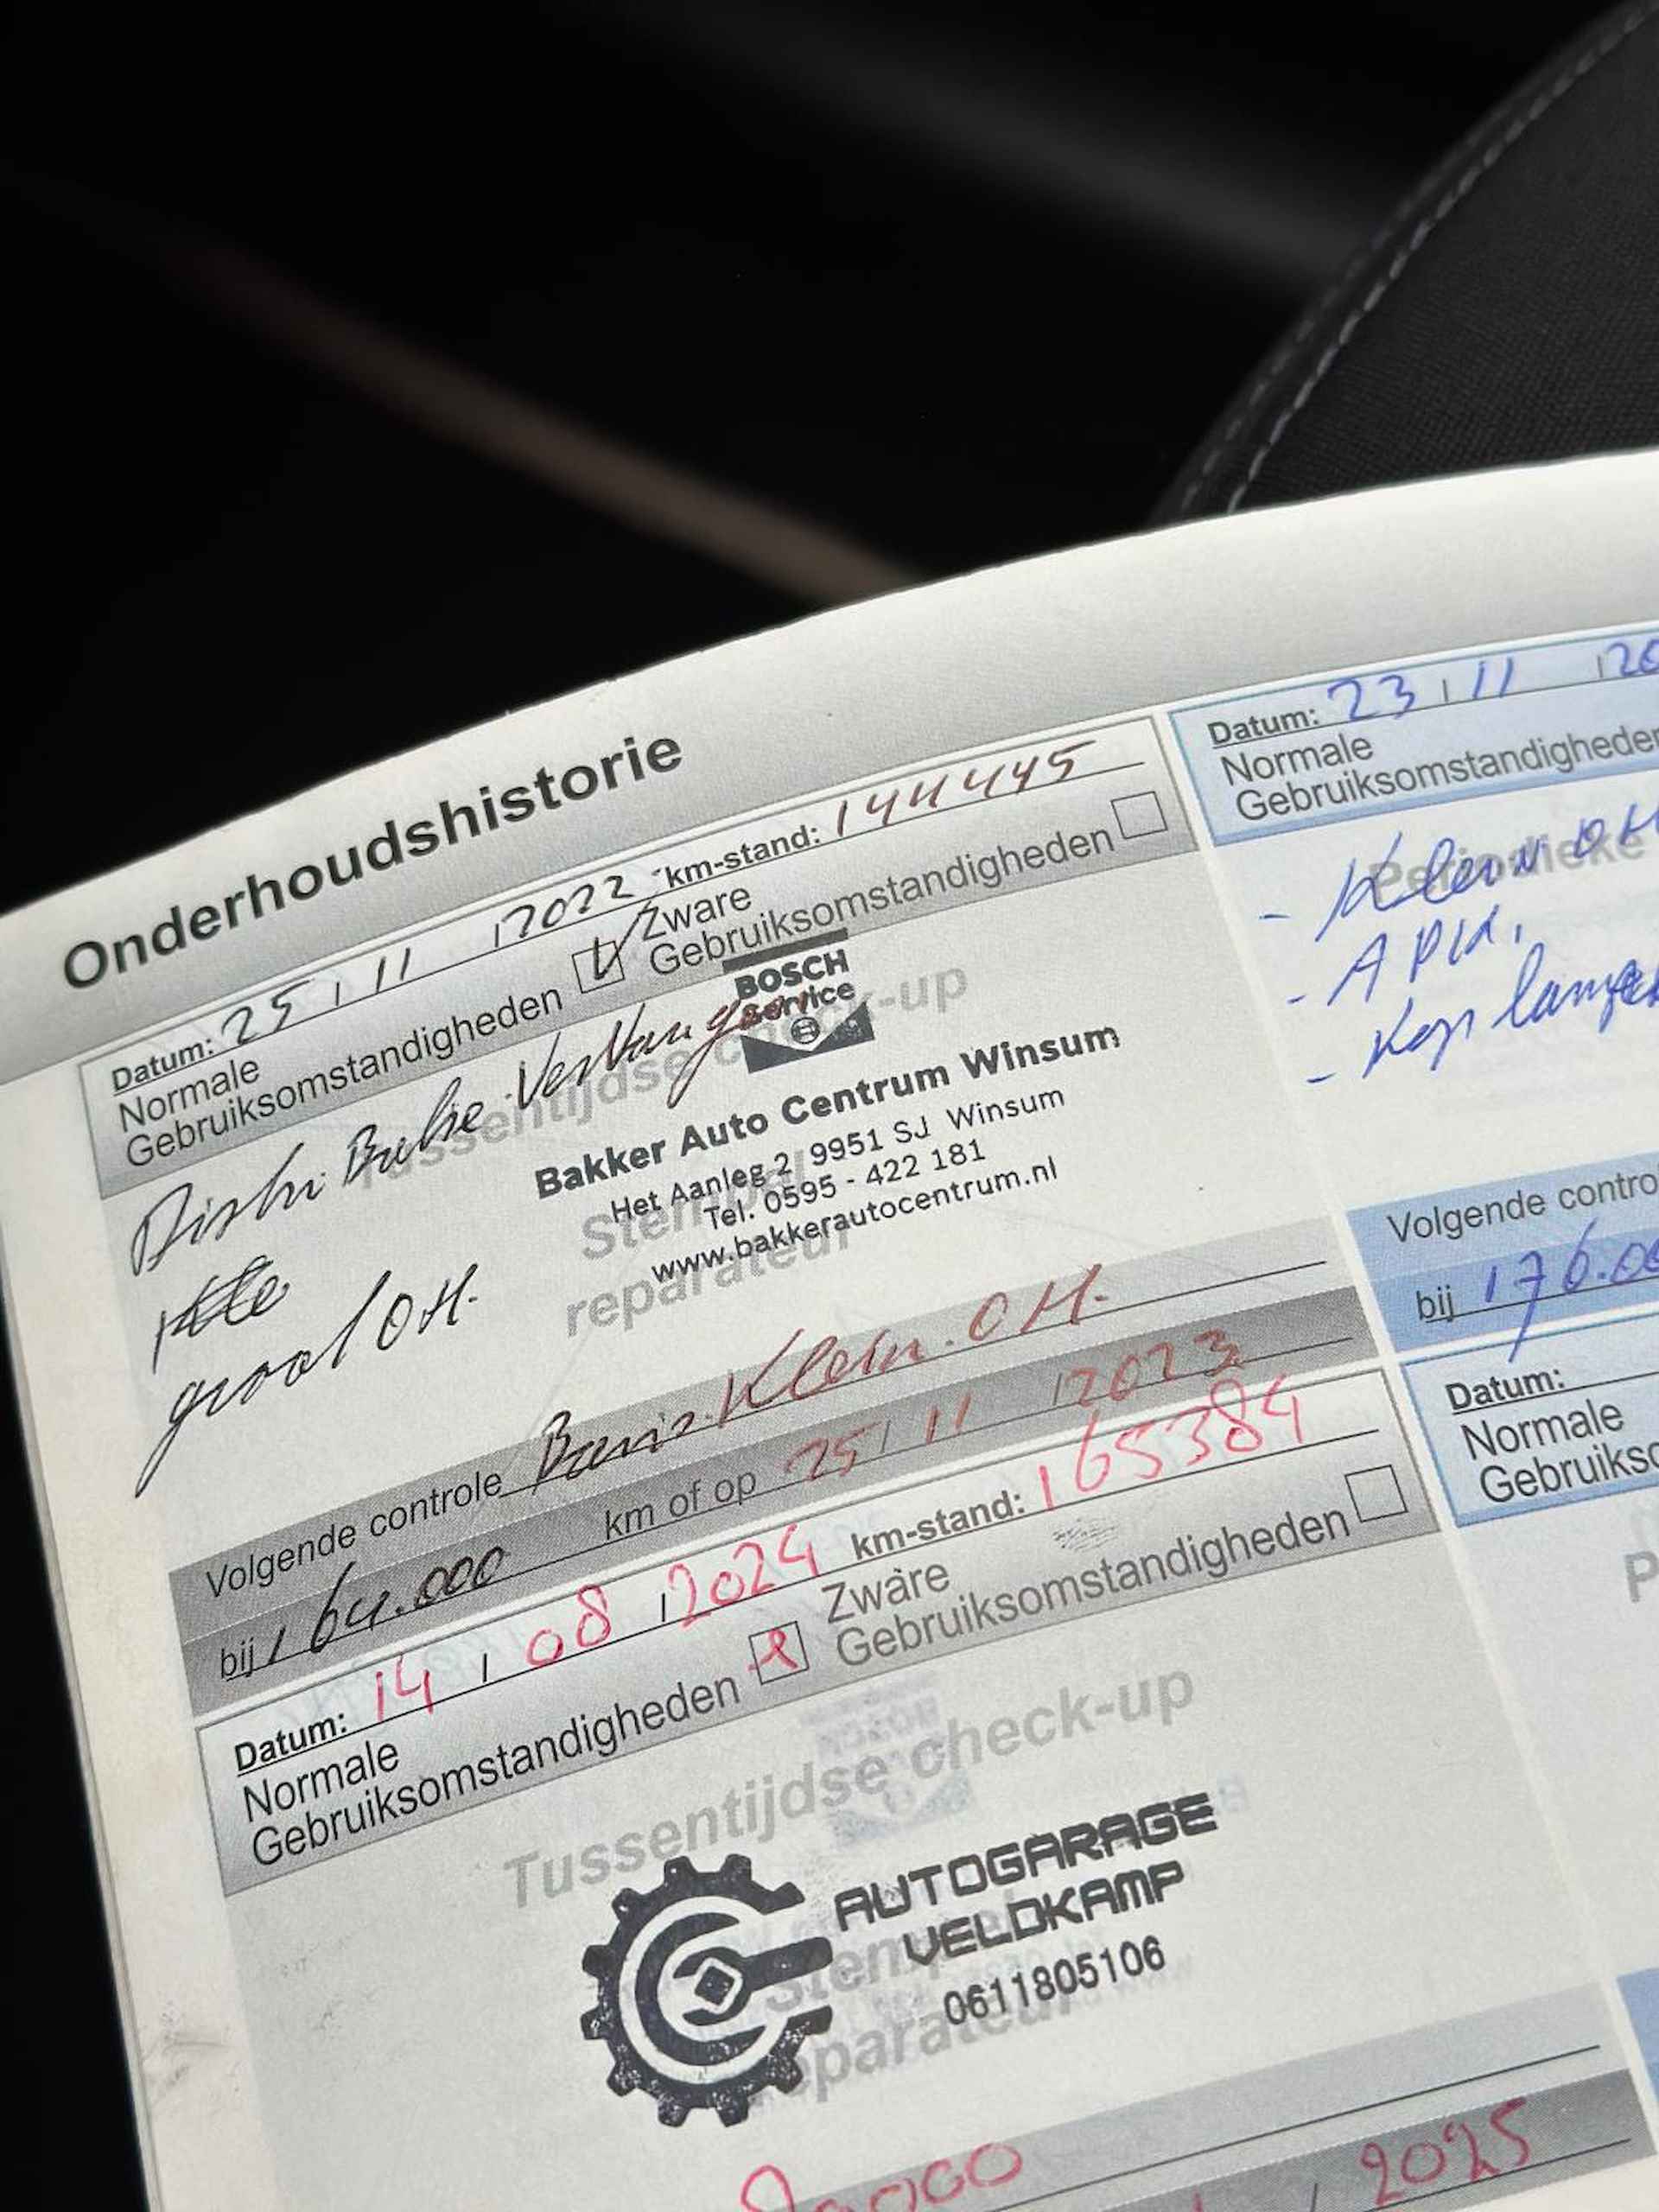 Onderhoudshistorie
Datum: 25 11 2022 km-stand: 144445
Normale Gebruiksomstandigheden
Zware Gebruiksomstandigheden
Tussentijdse check-up
BOSCH
Service
Bakker Auto Centrum Winsum
Het Aanleg 2 9951 SJ Winsum
Tel. 0595 - 422 181
www.bakkerautocentrum.nl
Stempel
reparateur
groot OH.
Volgende controle Klein. OH.
bij 164.000 km of op 25 11 2023
Datum: 14 08 2024 km-stand: 165384
Normale Gebruiksomstandigheden
Zware Gebruiksomstandigheden
Tussentijdse check-up
Stempel
reparateur
AUTOGARAGE
VELDKAMP
0611805106
2025
Datum: 23 11 20
Normale
Gebruiksomstandigheden
- Klein OH
- APK,
- Koplampen
Volgende contro
bij 176.00
Datum:
Normale
Gebruiks
P